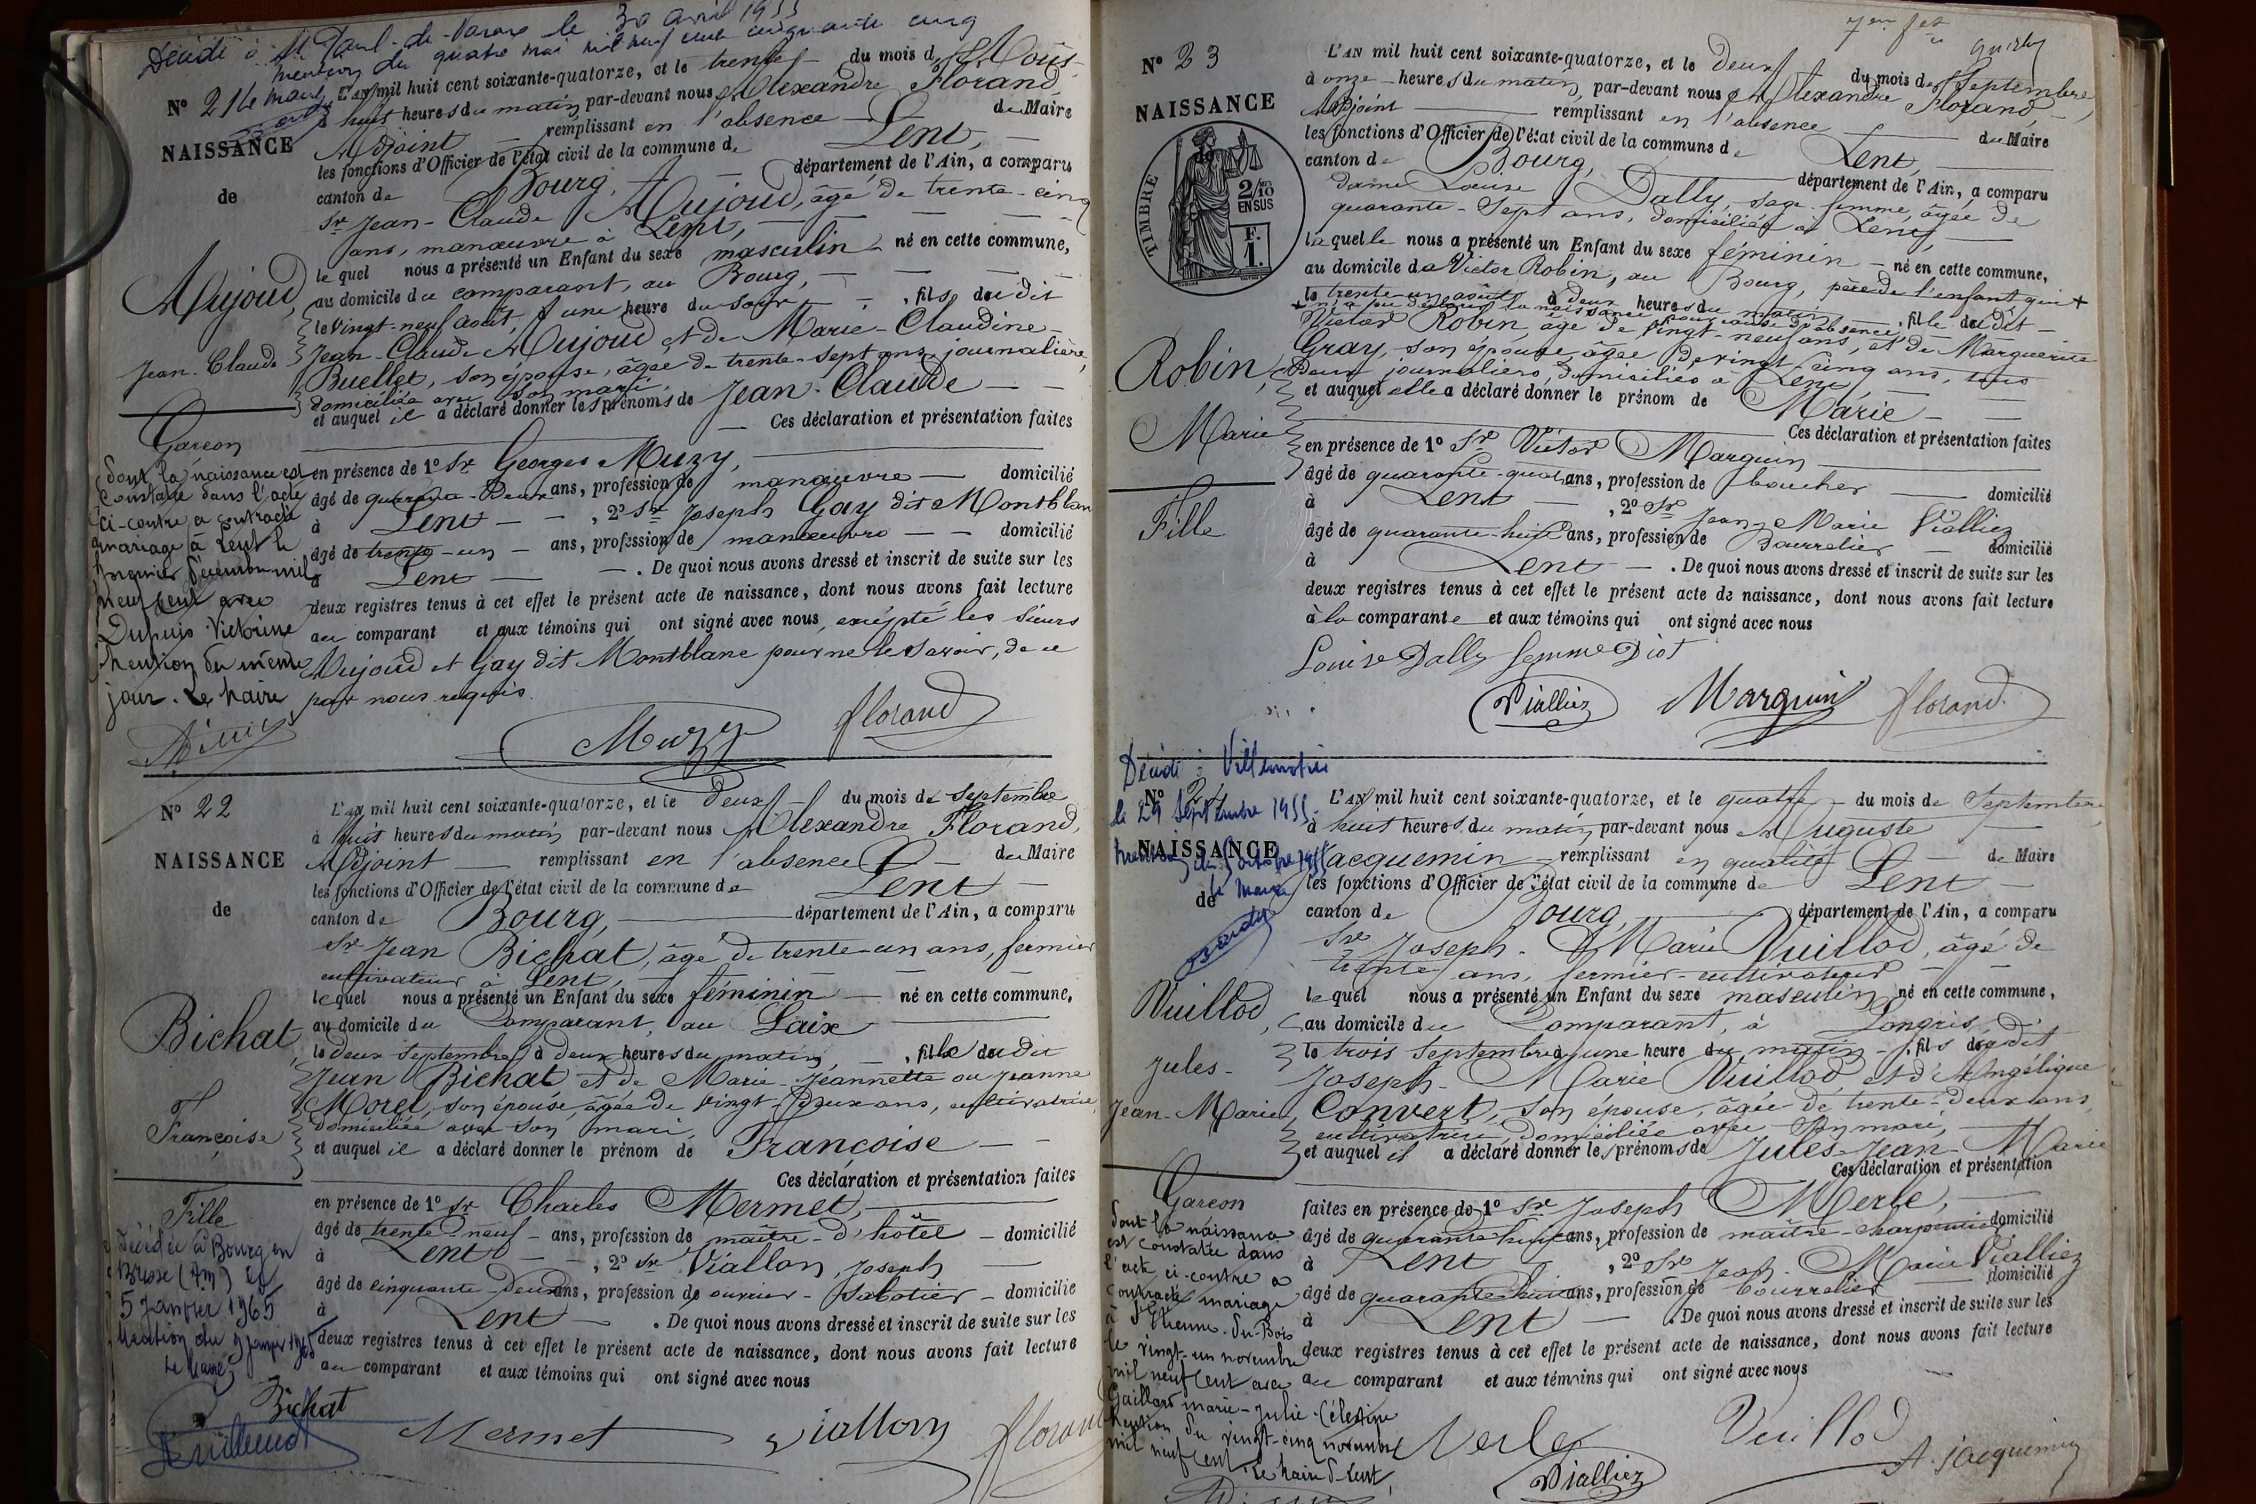 Décédé à St Paul-de-Varax le 30 avril 1955
mention du quatre mai mil neuf cent cinquante cinq
Le Maire
N° 21
NAISSANCE
de
Mujoud,
Jean-Claude
Garçon
dont la naissance est
constatée dans l'acte
ci-contre a contracté
mariage à Lent le
premier février mil
neuf cent avec
Dupuis Victorine
Mention du même
jour. Le Maire
L'AN mil huit cent soixante-quatorze, et le trente du mois d'Août
à huit heures du matin, par-devant nous Alexandre Florand,
Adjoint remplissant en l'absence du Maire
les fonctions d'Officier de l'état civil de la commune de Lent,
canton de Bourg, département de l'Ain, a comparu
Sr Jean-Claude Mujoud, âgé de trente-cinq
ans, manœuvre à Lent,
lequel nous a présenté un Enfant du sexe masculin né en cette commune,
au domicile du comparant, au Bourg,
le vingt-neuf août, à une heure du soir, fils dudit
Jean-Claude Mujoud et de Marie-Claudine
Buellet, son épouse, âgée de trente-sept ans, journalière,
domiciliée avec son mari,
et auquel il a déclaré donner les prénoms de Jean-Claude
Ces déclaration et présentation faites
en présence de 1° Sr Georges Muzy,
âgé de quarante-deux ans, profession de manœuvre domicilié
à Lent, 2° Sr Joseph Gay dit Montblanc
âgé de trente-un ans, profession de manœuvre domicilié
à Lent. De quoi nous avons dressé et inscrit de suite sur les
deux registres tenus à cet effet le présent acte de naissance, dont nous avons fait lecture
au comparant et aux témoins qui ont signé avec nous, excépté les sieurs
Mujoud et Gay dit Montblanc pour ne le savoir, de ce
par nous requis.
Muzy Florand
N° 22
NAISSANCE
de
Bichat,
Françoise
Fille
Décédée à Bourg en
Bresse (Ain) le
5 Janvier 1965
Mention du 9 janvier 1965
Le Maire,
L'AN mil huit cent soixante-quatorze, et le deux du mois de Septembre
à huit heures du matin par-devant nous Alexandre Florand,
Adjoint remplissant en l'absence du Maire
les fonctions d'Officier de l'état civil de la commune de Lent
canton de Bourg, département de l'Ain, a comparu
Sr Jean Bichat, âgé de trente-un ans, fermier
cultivateur à Lent,
lequel nous a présenté un Enfant du sexe féminin né en cette commune,
au domicile du Comparant, au Saix
le deux Septembre, à deux heures du matin, fille dudit
Jean Bichat et de Marie-Jeannette ou Jeanne
Morel, son épouse, âgée de vingt-deux ans, cultivatrice,
domiciliée avec son mari,
et auquel il a déclaré donner le prénom de Françoise
Ces déclaration et présentation faites
en présence de 1° Sr Charles Mermet,
âgé de trente-neuf ans, profession de maître-d'hôtel domicilié
à Lent, 2° Sr Viallon, Joseph
âgé de cinquante-deux ans, profession de ouvrier-sabotier domicilié
à Lent. De quoi nous avons dressé et inscrit de suite sur les
deux registres tenus à cet effet le présent acte de naissance, dont nous avons fait lecture
au comparant et aux témoins qui ont signé avec nous
Bichat
Mermet Viallon Florand
N° 23
NAISSANCE
TIMBRE
2/10
EN SUS
F.
1.
Robin,
Marie
Fille
L'AN mil huit cent soixante-quatorze, et le deux du mois de Septembre,
à onze heures du matin, par-devant nous Alexandre Florand,
Adjoint remplissant en l'absence du Maire
les fonctions d'Officier de l'état civil de la commune de Lent,
canton de Bourg, département de l'Ain, a comparu
dame Louise Dally, sage-femme, âgée de
quarante-sept ans, domiciliée à Lent,
laquelle nous a présenté un Enfant du sexe féminin né en cette commune,
au domicile de Victor Robin, au Bourg, père de l'enfant qui +
+ n'a pu déclarer la naissance pour cause d'absence
le trente-un août à deux heures du matin, fille dudit
Victor Robin âgé de vingt-neuf ans, et de Marguerite
Gray, son épouse, âgée de vingt-cinq ans, tous
deux journaliers, domiciliés à Lent,
et auquel elle a déclaré donner le prénom de Marie
Ces déclaration et présentation faites
en présence de 1° Sr Victor Marguin
âgé de quarante-quatre ans, profession de boucher domicilié
à Lent, 2° Sr Jean-Marie Vialliez
âgé de quarante-huit ans, profession de Bourrelier domicilié
à Lent. De quoi nous avons dressé et inscrit de suite sur les
deux registres tenus à cet effet le présent acte de naissance, dont nous avons fait lecture
à la comparante et aux témoins qui ont signé avec nous
Louise Dally femme Diot
Vialliez Marguin Florand
Décédé à Villemotier
le 29 Septembre 1955.
Mention du 5 octobre 1955
Le Maire
N°
NAISSANCE
de
Vuillod,
Jules-
Jean-Marie,
Garçon
dont la naissance
est constatée dans
l'acte ci-contre a
contracté mariage
à St Etienne-du-Bois
le vingt-un novembre
mil neuf cent avec
Gaillard Marie-Julie-Célestine
Mention du vingt-cinq novembre
mil neuf cent. Le Maire de Lent,
L'AN mil huit cent soixante-quatorze, et le quatre du mois de Septembre,
à huit heures du matin, par-devant nous Auguste
Jacquemin remplissant en qualité de Maire
les fonctions d'Officier de l'état civil de la commune de Lent
canton de Bourg, département de l'Ain, a comparu
Sr Joseph-Marie Vuillod, âgé de
trente ans, fermier-cultivateur
lequel nous a présenté un Enfant du sexe masculin né en cette commune,
au domicile du Comparant, à Longris,
le trois Septembre, à une heure du matin, fils dudit
Joseph-Marie Vuillod et d'Angélique
Convert, son épouse, âgée de trente-deux ans,
cultivatrice, domiciliée avec son mari,
et auquel il a déclaré donner les prénoms de Jules-Jean-Marie
Ces déclaration et présentation
faites en présence de 1° Sr Joseph Merle,
âgé de quarante-huit ans, profession de maître-charpentier domicilié
à Lent, 2° Sr Jean-Marie Vialliez
âgé de quarante-huit ans, profession de bourrelier domicilié
à Lent. De quoi nous avons dressé et inscrit de suite sur les
deux registres tenus à cet effet le présent acte de naissance, dont nous avons fait lecture
au comparant et aux témoins qui ont signé avec nous
Merle Vuillod
Vialliez A. Jacquemin